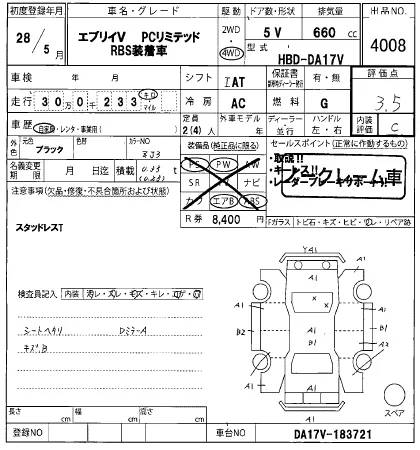 初度登録年月
28 / 5月
車名・グレード
エブリイV PCリミテッド
RBS装着車
駆動
2WD
4WD
ドア数・形状
5 V
排気量
660 cc
型式
HBD-DA17V
出品NO.
4008
車検 年 月
シフト
IAT
保証書
有・無
評価点
3.5
走行 30万0千233 キロ・マイル
冷房
AC
燃料
G
内装評価
C
車歴
自家用・レンタ・事業用( )
定員
2(4)人
外車モデル
年
ディーラー・並行
ハンドル
左・右
外色
元色
ブラック
色替
カラーNO
ZJ3
名義変更期限 月 日迄
積載
装備品(純正品に限る)
PS PW AW
SR ナビ
カワ エアB ABS
R券 8,400円
セールスポイント(正常に作動するもの)
・取説!!
・キーレス!!
・レーダーブレーキサポート!!
ノークレーム車
注意事項(欠品・修復・不具合箇所および状態)
スタッドレスT
Fガラス トビ石・キズ・ヒビ・ワレ・リペア跡
検査員記入
内装
シートヘタリ DミラーA
キズB
YA1
A1 A1
A1
B2 A1 B1 B2
A1 A2
A1 A1
A1
スペア
長さ cm
幅 cm
高さ cm
登録NO
車台NO
DA17V-183721